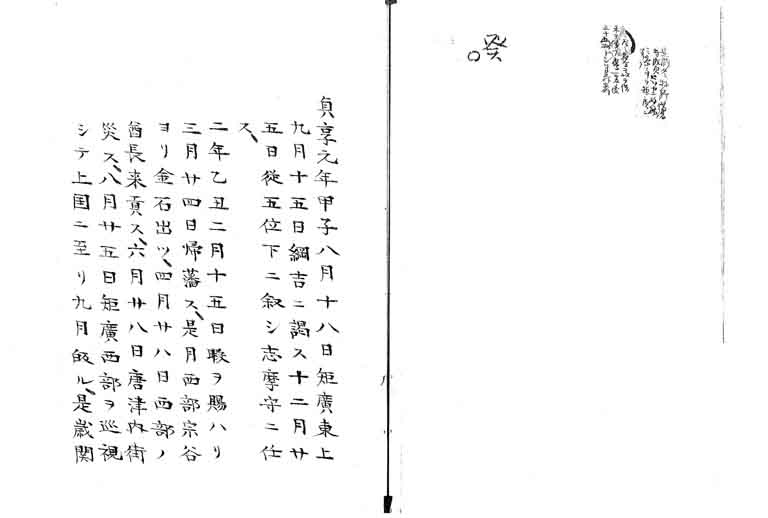 癸
貞享元年甲子八月十八日矩廣東上
九月十五日綱吉ニ謁ス十二月廿
五日從五位下ニ叙シ志摩守ニ任
ス、
二年乙丑二月十五日暇ヲ賜ハリ
三月廿四日帰藩ス、是月西部宗谷
ヨリ金石出ツ、四月廿八日西部ノ
酋長来貢ス、六月廿八日唐津内街
災ス、八月廿五日矩廣西部ヲ巡視
シテ上国ニ至リ九月皈ル、是歳関